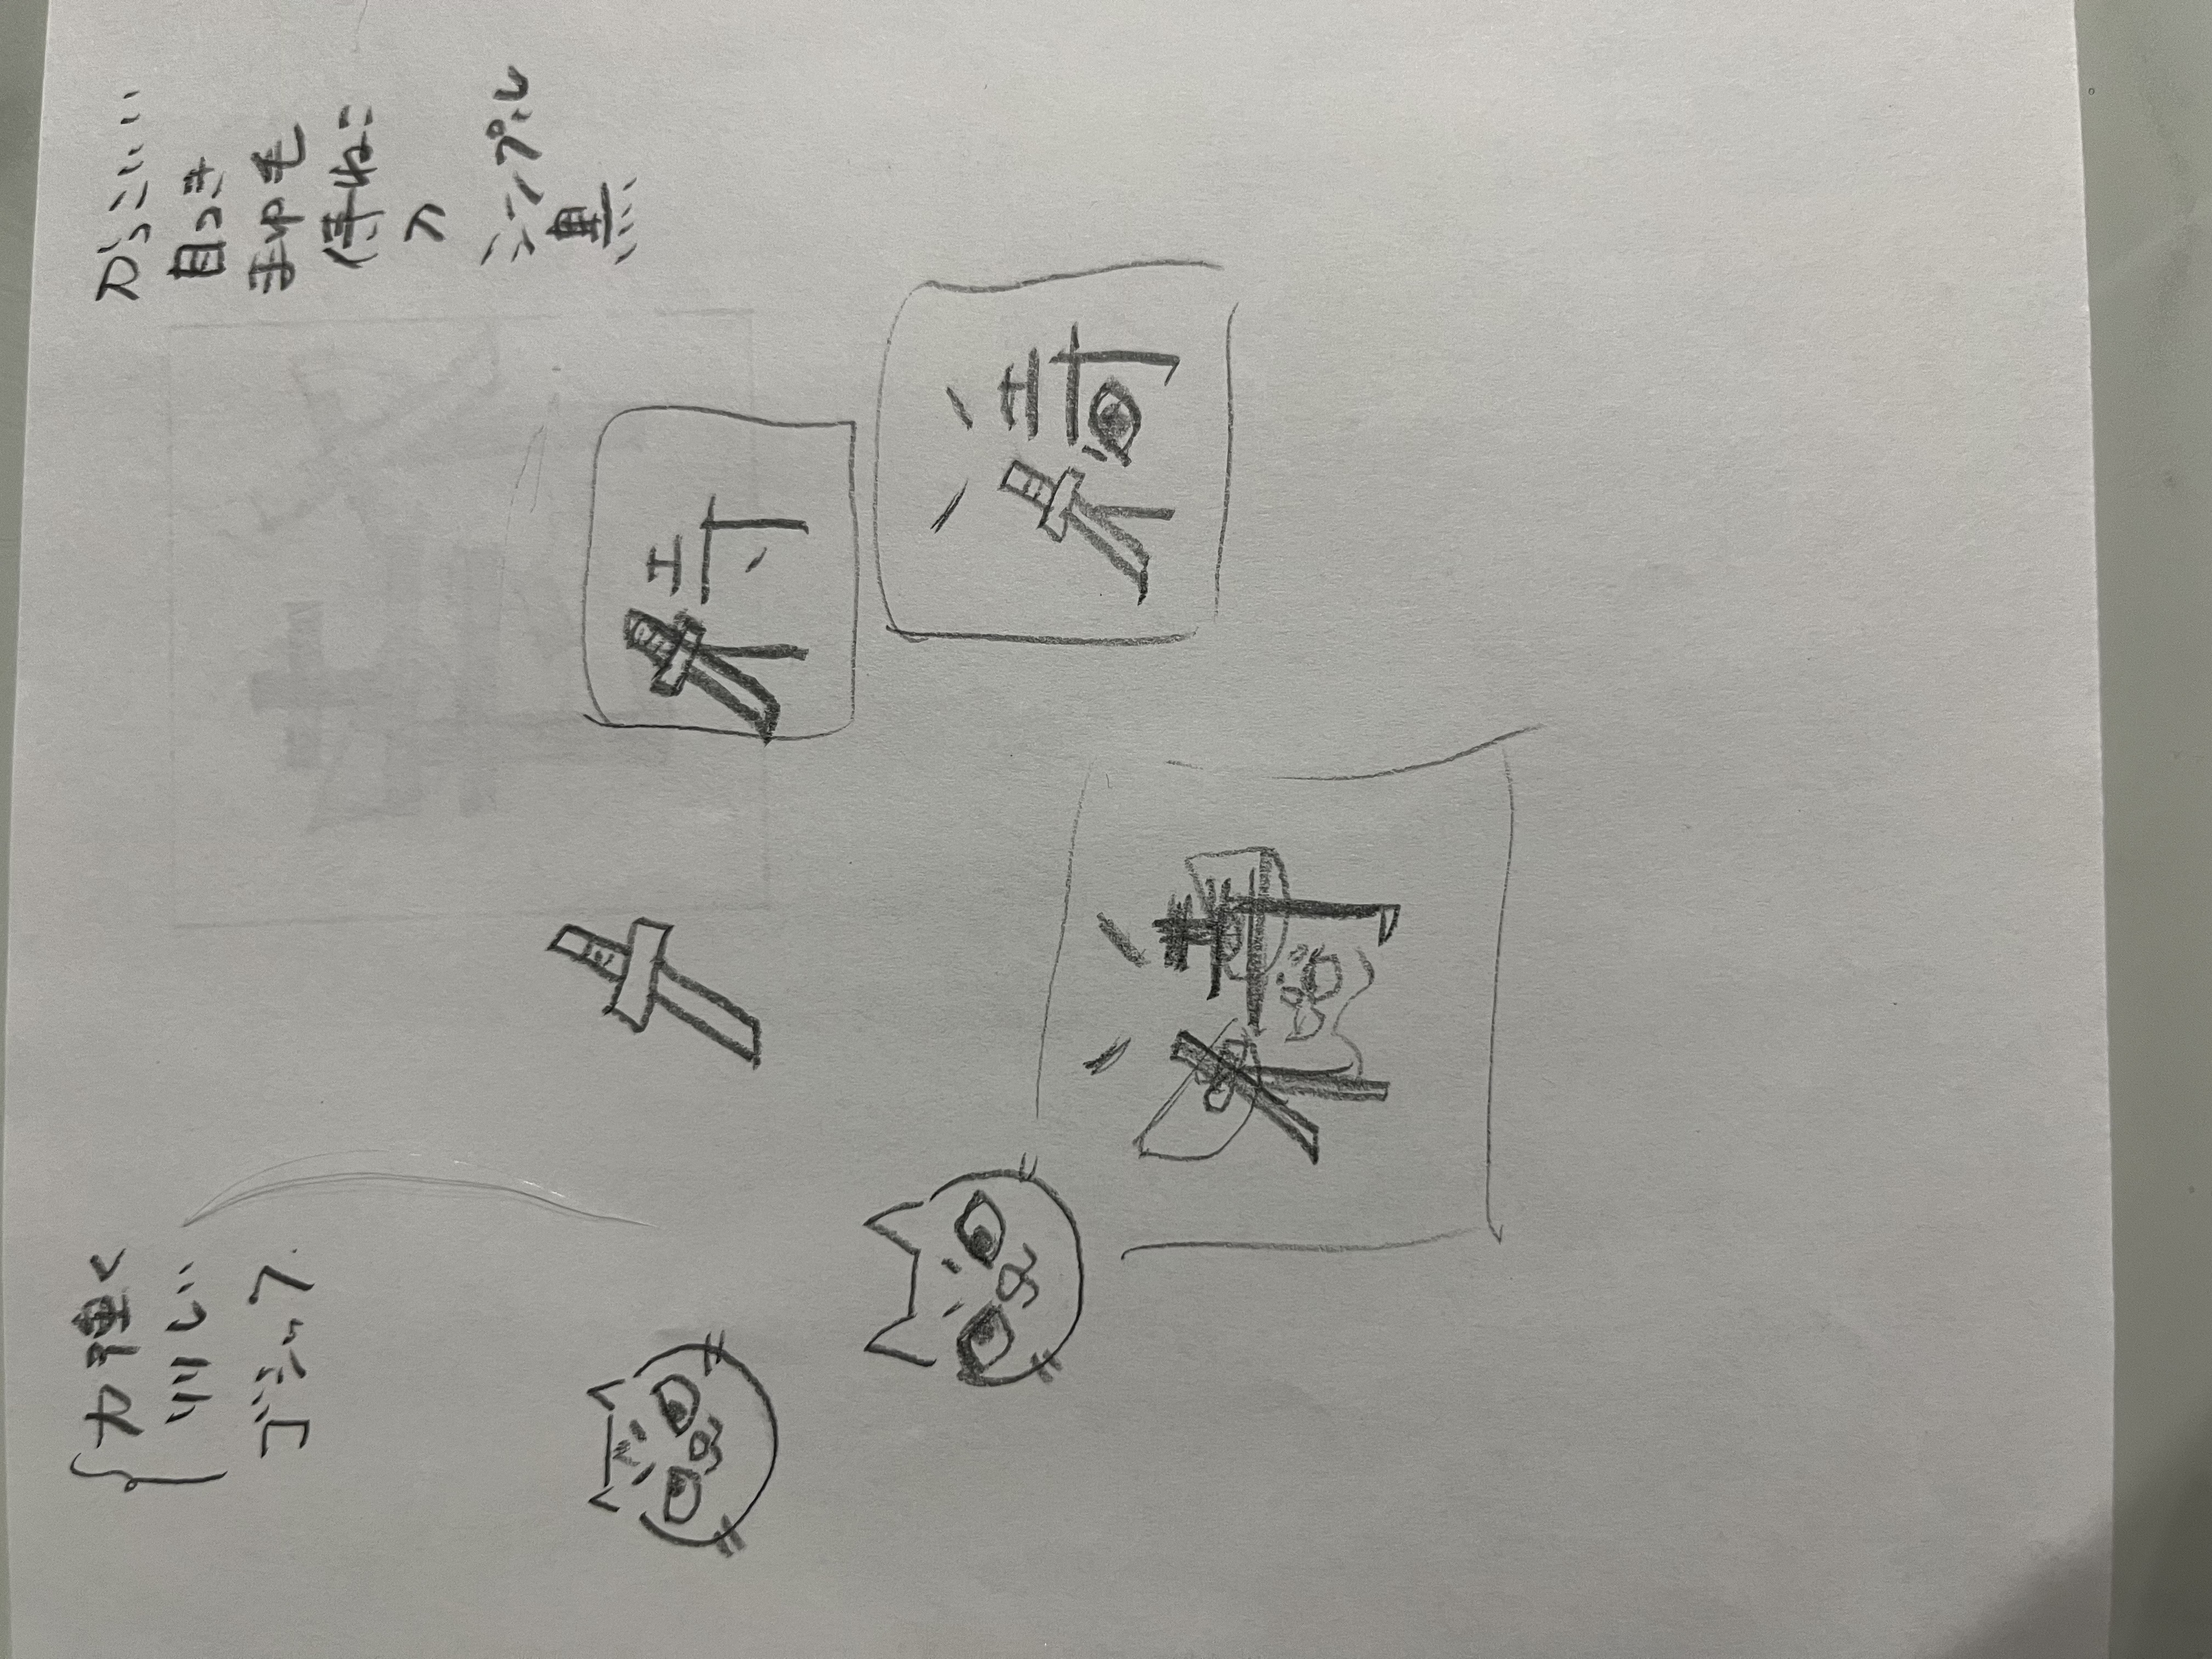 力強く
りりしい
ゴシック
かっこいい
目つき
まゆ毛
侍ねこ
刀
シンプル
黒
侍
侍
侍